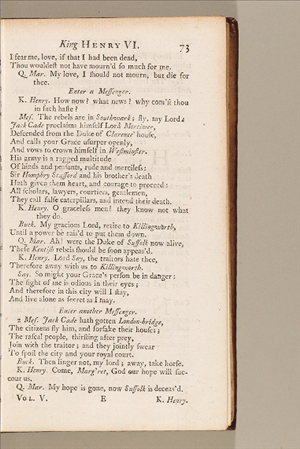 King HENRY VI. 73
I fear me, love, if that I had been dead,
Thou wouldest not have mourn'd so much for me.
Q. Mar. My love, I should not mourn, but die for
thee.
Enter a Messenger.
K. Henry. How now? what news? why com'st thou
in such haste?
Mes. The rebels are in Southwark; fly, my Lord:
Jack Cade proclaims himself Lord Mortimer,
Descended from the Duke of Clarence' house,
And calls your Grace usurper openly,
And vows to crown himself in Westminster.
His army is a ragged multitude
Of hinds and peasants, rude and merciless:
Sir Humphry Stafford and his brother's death
Hath given them heart, and courage to proceed:
All scholars, lawyers, courtiers, gentlemen,
They call false caterpillars, and intend their death.
K. Henry. O graceless men! they know not what
they do.
Buck. My gracious Lord, retire to Killingworth,
Until a power be rais'd to put them down.
Q. Mar. Ah! were the Duke of Suffolk now alive,
These Kentish rebels should be soon appeas'd.
K. Henry. Lord Say, the traitors hate thee,
Therefore away with us to Killingworth.
Say. So might your Grace's person be in danger:
The sight of me is odious in their eyes;
And therefore in this city will I stay,
And live alone as secret as I may.
Enter another Messenger.
2 Mes. Jack Cade hath gotten London-bridge,
The citizens fly him, and forsake their houses;
The rascal people, thirsting after prey,
Join with the traitor; and they jointly swear
To spoil the city and your royal court.
Buck. Then linger not, my lord; away, take horse.
K. Henry. Come, Marg'ret, God our hope will suc-
cour us.
Q. Mar. My hope is gone, now Suffolk is deceas'd.
VOL. V. E K. Henry.